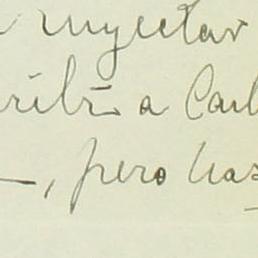 a inyectar
cribí a Carl
, pero has